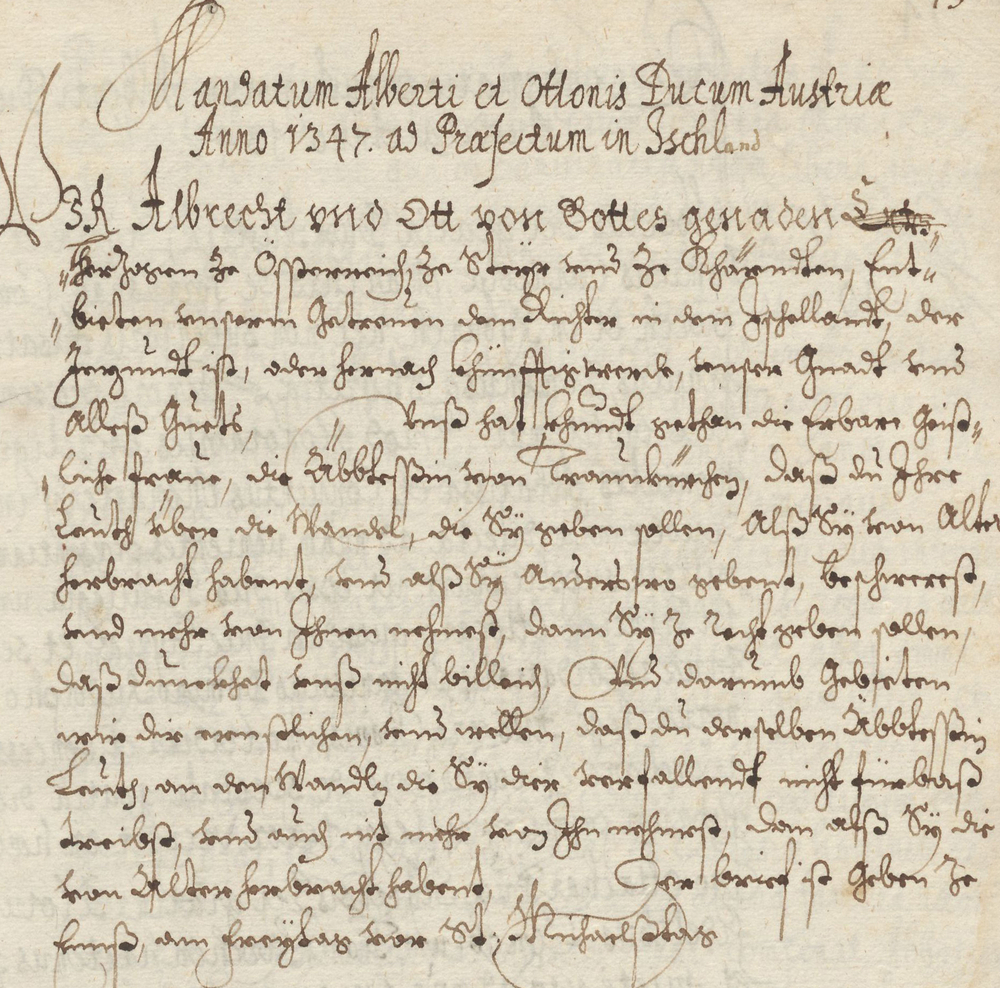 Mandatum Alberti et Ottonis Ducum Austriæ
Anno 1347. ad Præfectum in Ischland
WIR Albrecht vnd Ott von Gottes genaden
Herzogen ze Össterreich, ze Steyr vnd ze Khärndten, Ent-
bieten vnserm Getreuen dem Richter in dem Ischellandt, der
Jezundt ist, oder hernach khünfftig werde, vnser Gnadt vnd
Alleß Guets, Vnß hat khundt gethan die Erbare Geist-
liche fraue, die Äbbtessßin von Traunkürchen, daß du Ihre
Leuth über die Wandel, die Sÿ geben sollen, Alß Sÿ von Alter
herbracht habent, vnd alß Sÿ Anderswo gebent, beschwerest,
vnd mehr von Ihnen nehmest, dann Sÿ ze recht geben sollen,
daß dunckhet vnß nicht billeich, Und darumb Gebieten
wir dir ernstlichen, vnd wellen, daß du derselben Äbbtessßin
Leuth, an den Wandln die Sÿ dier verfallendt nicht fürbaß
treibst, vnd auch nit mehr von Ihn nehmest, dan alß Sÿ die
von Alter herbracht habent, Der brief ist Geben ze
Ennß, am Freytag vor St: Michaelßtag